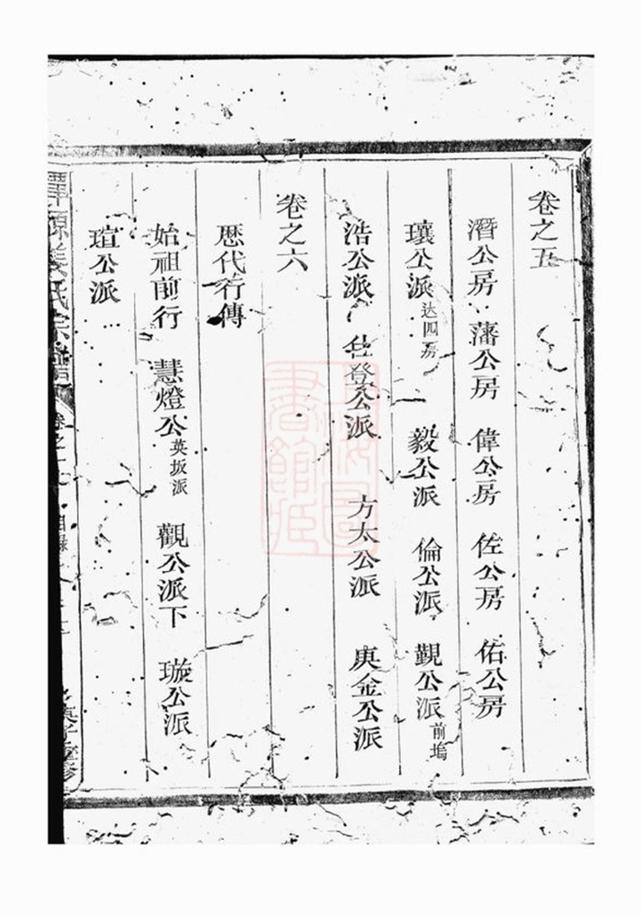 卷之五
潛公房 藩公房 偉公房 佐公房 佑公房
瓖公派达四房 毅公派 倫公派 觀公派前塢
浩公派 仕登公派 方太公派 庚金公派
卷之六
歷代行傳
始祖前行 慧燈公英坂派 觀公派下 璇公派
瑄公派
源姜氏宗譜 卷之 目錄